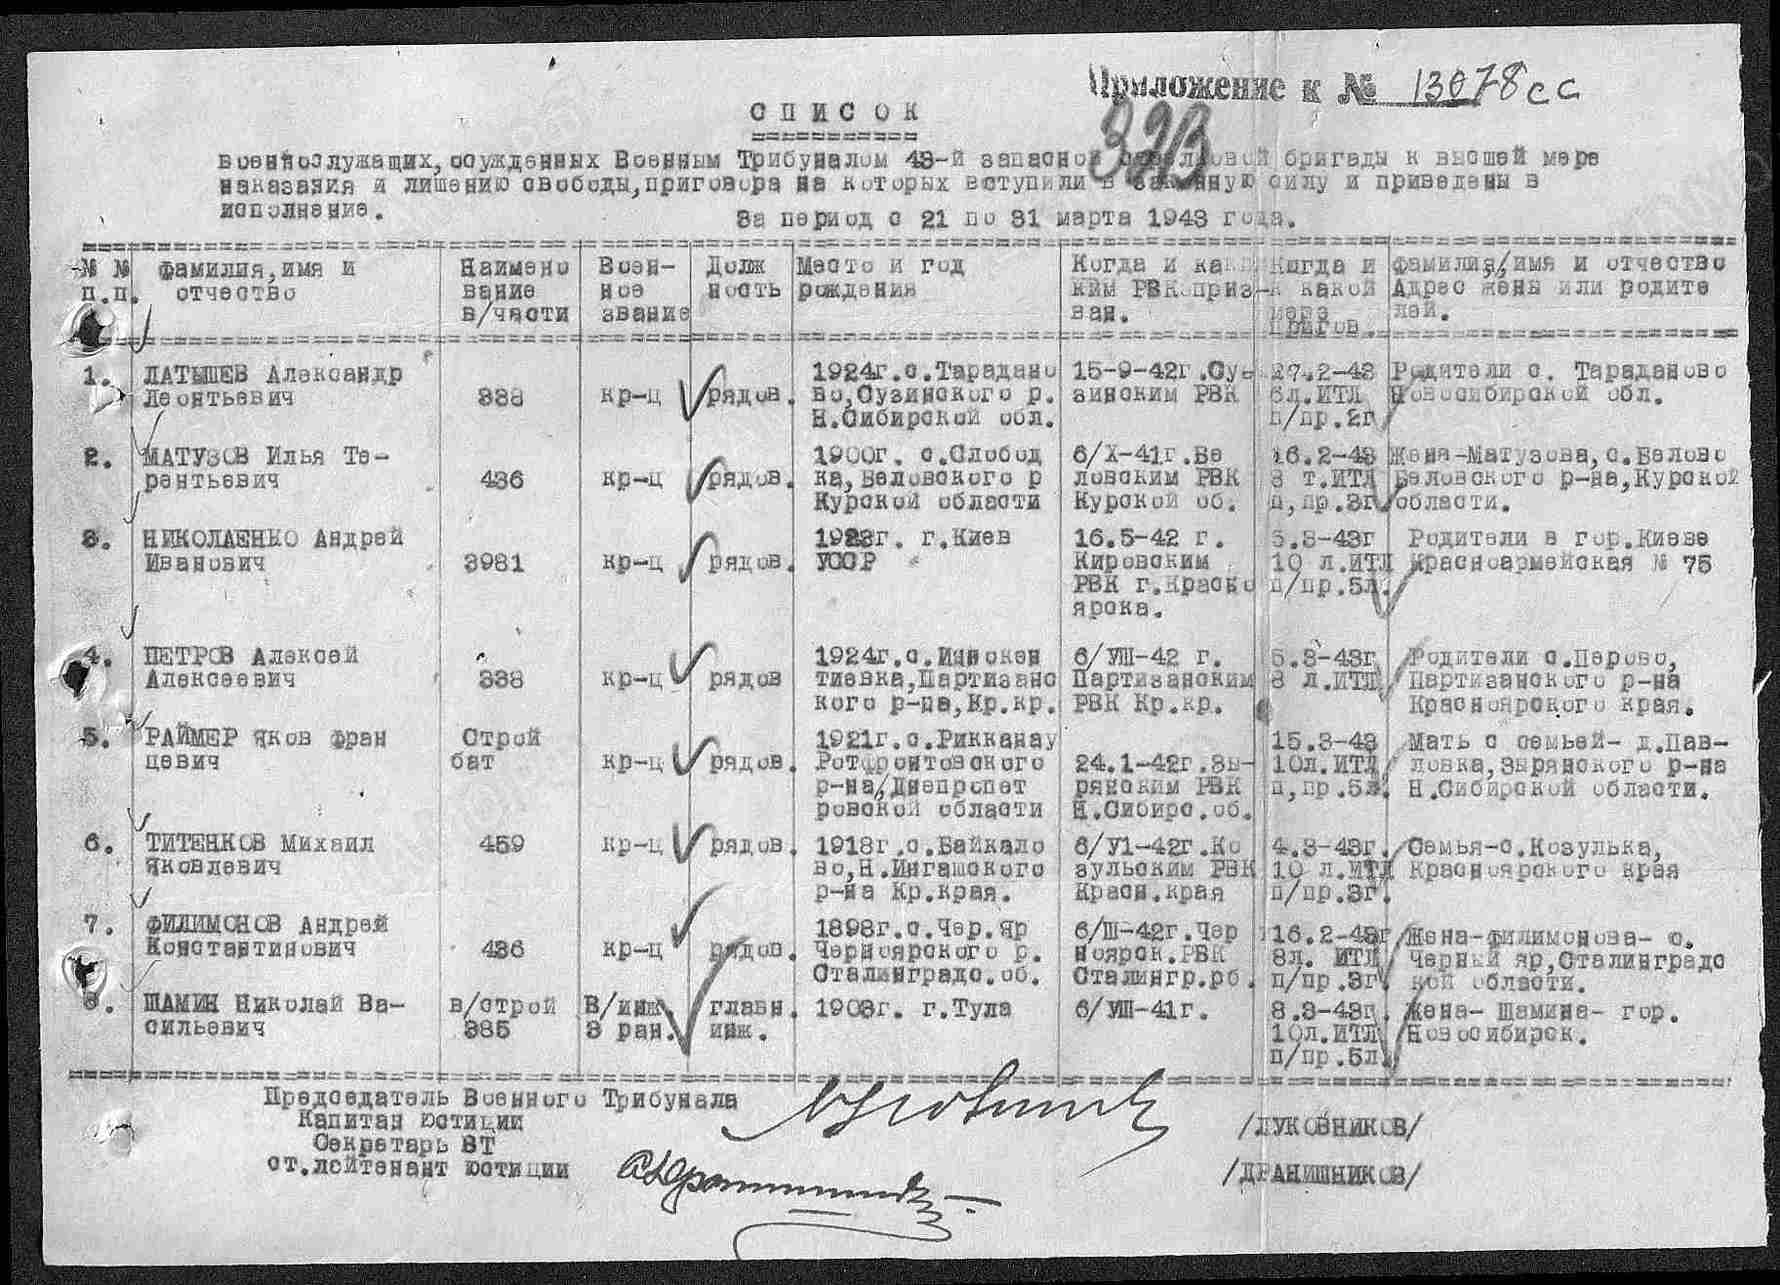 Приложение к № 13078сс
СПИСОК
военнослужащих, осужденных Военным Трибуналом 43-й запасной стрелковой бригады к высшей мере
наказания и лишению свободы, приговора на которых вступили в законную силу и приведены в
исполнение.
За период с 21 по 31 марта 1943 года.
№ № п.п. фамилия, имя и отчество Наимено вание в/части Воен- ное звание Долж ность Место и год рождения Когда и каки ким РВК приз- ван. Когда и к какой мере пригов. фамилия, имя и отчество Адрес жены или родите лей.
1. ЛАТЫШЕВ Александр 1924г.с.Тарадано 15-9-42г.Су- 27.2-43 Родители с. Тараданово
Леонтьевич 338 кр-ц рядов. во,Сузинского р. зинским РВК 6л.ИТЛ Новосибирской обл.
Н.Сибирской обл. п/пр.2г
2. МАТУЗОВ Илья Те- 1900г. с.Слобод 6/X-41г.Бе 16.2-43 Жена-Матузова,с.Белово
рентьевич 436 кр-ц рядов. ка,Беловского р ловским РВК 8 т.ИТЛ Беловского р-на,Курской
Курской области Курской об. п,пр.3г области.
3. НИКОЛАЕНКО Андрей 1923г. г.Киев 16.5-42 г. 5.3-43г Родители в гор.Киеве
Иванович 3981 кр-ц рядов. УССР Кировским 10 л.ИТЛ Красноармейская № 75
РВК г.Красно п/пр.5л.
ярска.
4. ПЕТРОВ Алексей 1924г.с.Иннокен 6/УШ-42 г. 5.3-43г Родители с.Перово,
Алексеевич 338 кр-ц рядов тиевка,Партизанс Партизанским 8 л.ИТЛ Партизанского р-на
кого р-на,Кр.кр. РВК Кр.кр. Красноярского края.
5. РАЙМЕР Яков Фран Строй 1921г.с.Рикканау 15.3-43 Мать с семьей- д.Пав-
цевич бат кр-ц рядов. Ротфронтовского 24.1-42г.Зы- 10л.ИТЛ ловка,Зырянского р-на
р-на,Днепропет рянским РВК п,пр.5л. Н.Сибирской области.
ровской области Н.Сибирс.об.
6. ТИТЕНКОВ Михаил 459 кр-ц рядов. 1918г.с.Байкало 6/У1-42г.Ко 4.3-43г. Семья-с.Козулька,
Яковлевич во,Н.Ингашского зульским РВК 10 л.ИТЛ Красноярского края
р-на Кр.края. Красн.края п/пр.3г.
7. ФИЛИМОНОВ Андрей 1898г.с.Чер.Яр 6/Ш-42г.Чер 16.2-43г Жена-Филимонова- с.
Константинович 436 кр-ц рядов. Черноярского р. ноярск.РВК 8л. ИТЛ Черный яр,Сталинградс
Сталинградс.об. Сталингр.об. п/пр.3г. кой области.
8. ШАМИН Николай Ва- в/строй В/инж. главн. 1903г. г.Тула 6/УШ-41г. 8.3-43г. Жена- Шамина- гор.
сильевич 385 3 ран. инж. 10л.ИТЛ Новосибирск.
п/пр.5л.
Председатель Военного Трибунала
Капитан юстиции /ЛУКОВНИКОВ/
Секретарь ВТ
ст.лейтенант юстиции /ДРАНИШНИКОВ/